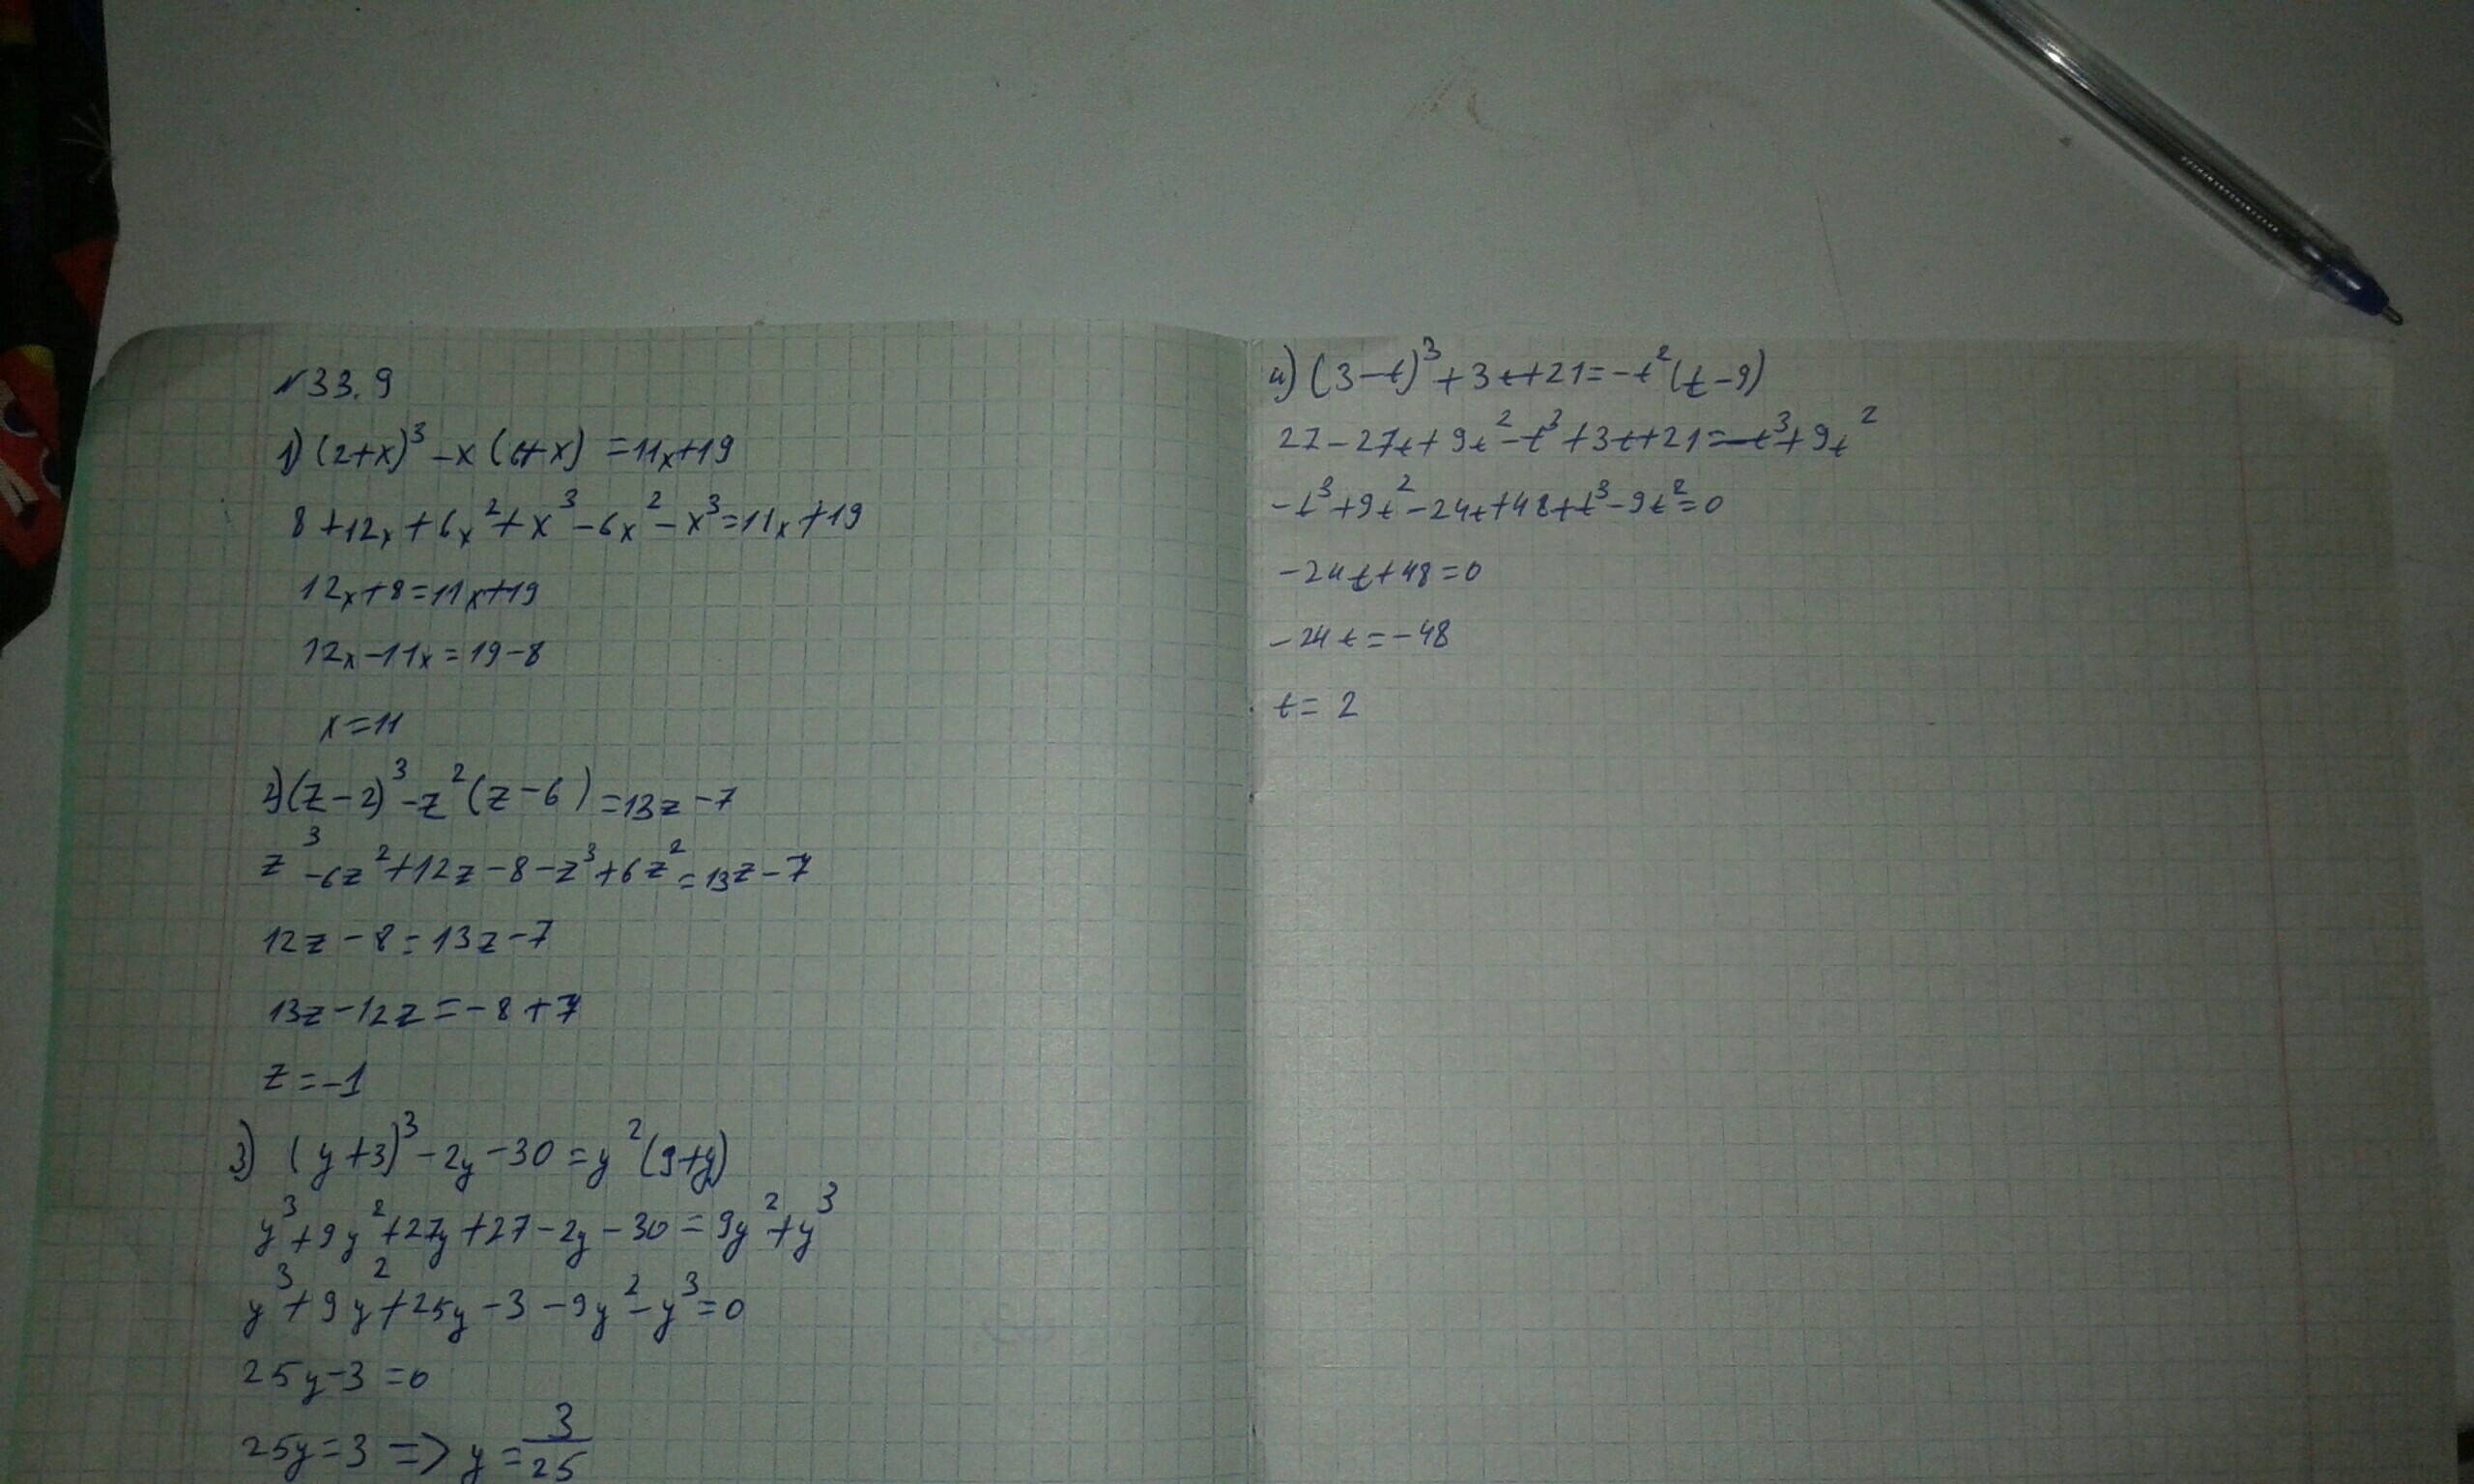 №33.9
1) (2+x)³ - x (6+x) = 11x+19
8 + 12x + 6x² + x³ - 6x² - x³ = 11x + 19
12x + 8 = 11x + 19
12x - 11x = 19 - 8
x = 11
2) (z - 2)³ - z² (z - 6) = 13z - 7
z³ - 6z² + 12z - 8 - z³ + 6z² = 13z - 7
12z - 8 = 13z - 7
13z - 12z = -8 + 7
z = -1
3) (y+3)³ - 2y - 30 = y² (9+y)
y³ + 9y² + 27y + 27 - 2y - 30 = 9y² + y³
y³ + 9y² + 25y - 3 - 9y² - y³ = 0
25y - 3 = 0
25y = 3 => y = 3/25
4) (3-t)³ + 3t + 21 = -t² (t - 9)
27 - 27t + 9t² - t³ + 3t + 21 = -t³ + 9t²
-t³ + 9t² - 24t + 48 + t³ - 9t² = 0
-24t + 48 = 0
-24t = -48
t = 2